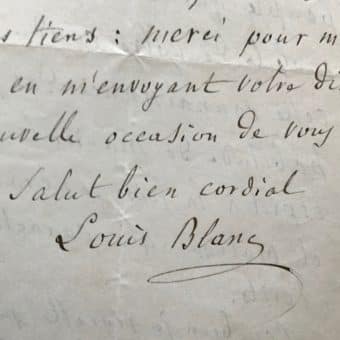 s tiens : merci pour m
en m'envoyant votre di
uvelle occasion de vous
Salut bien cordial
Louis Blanc